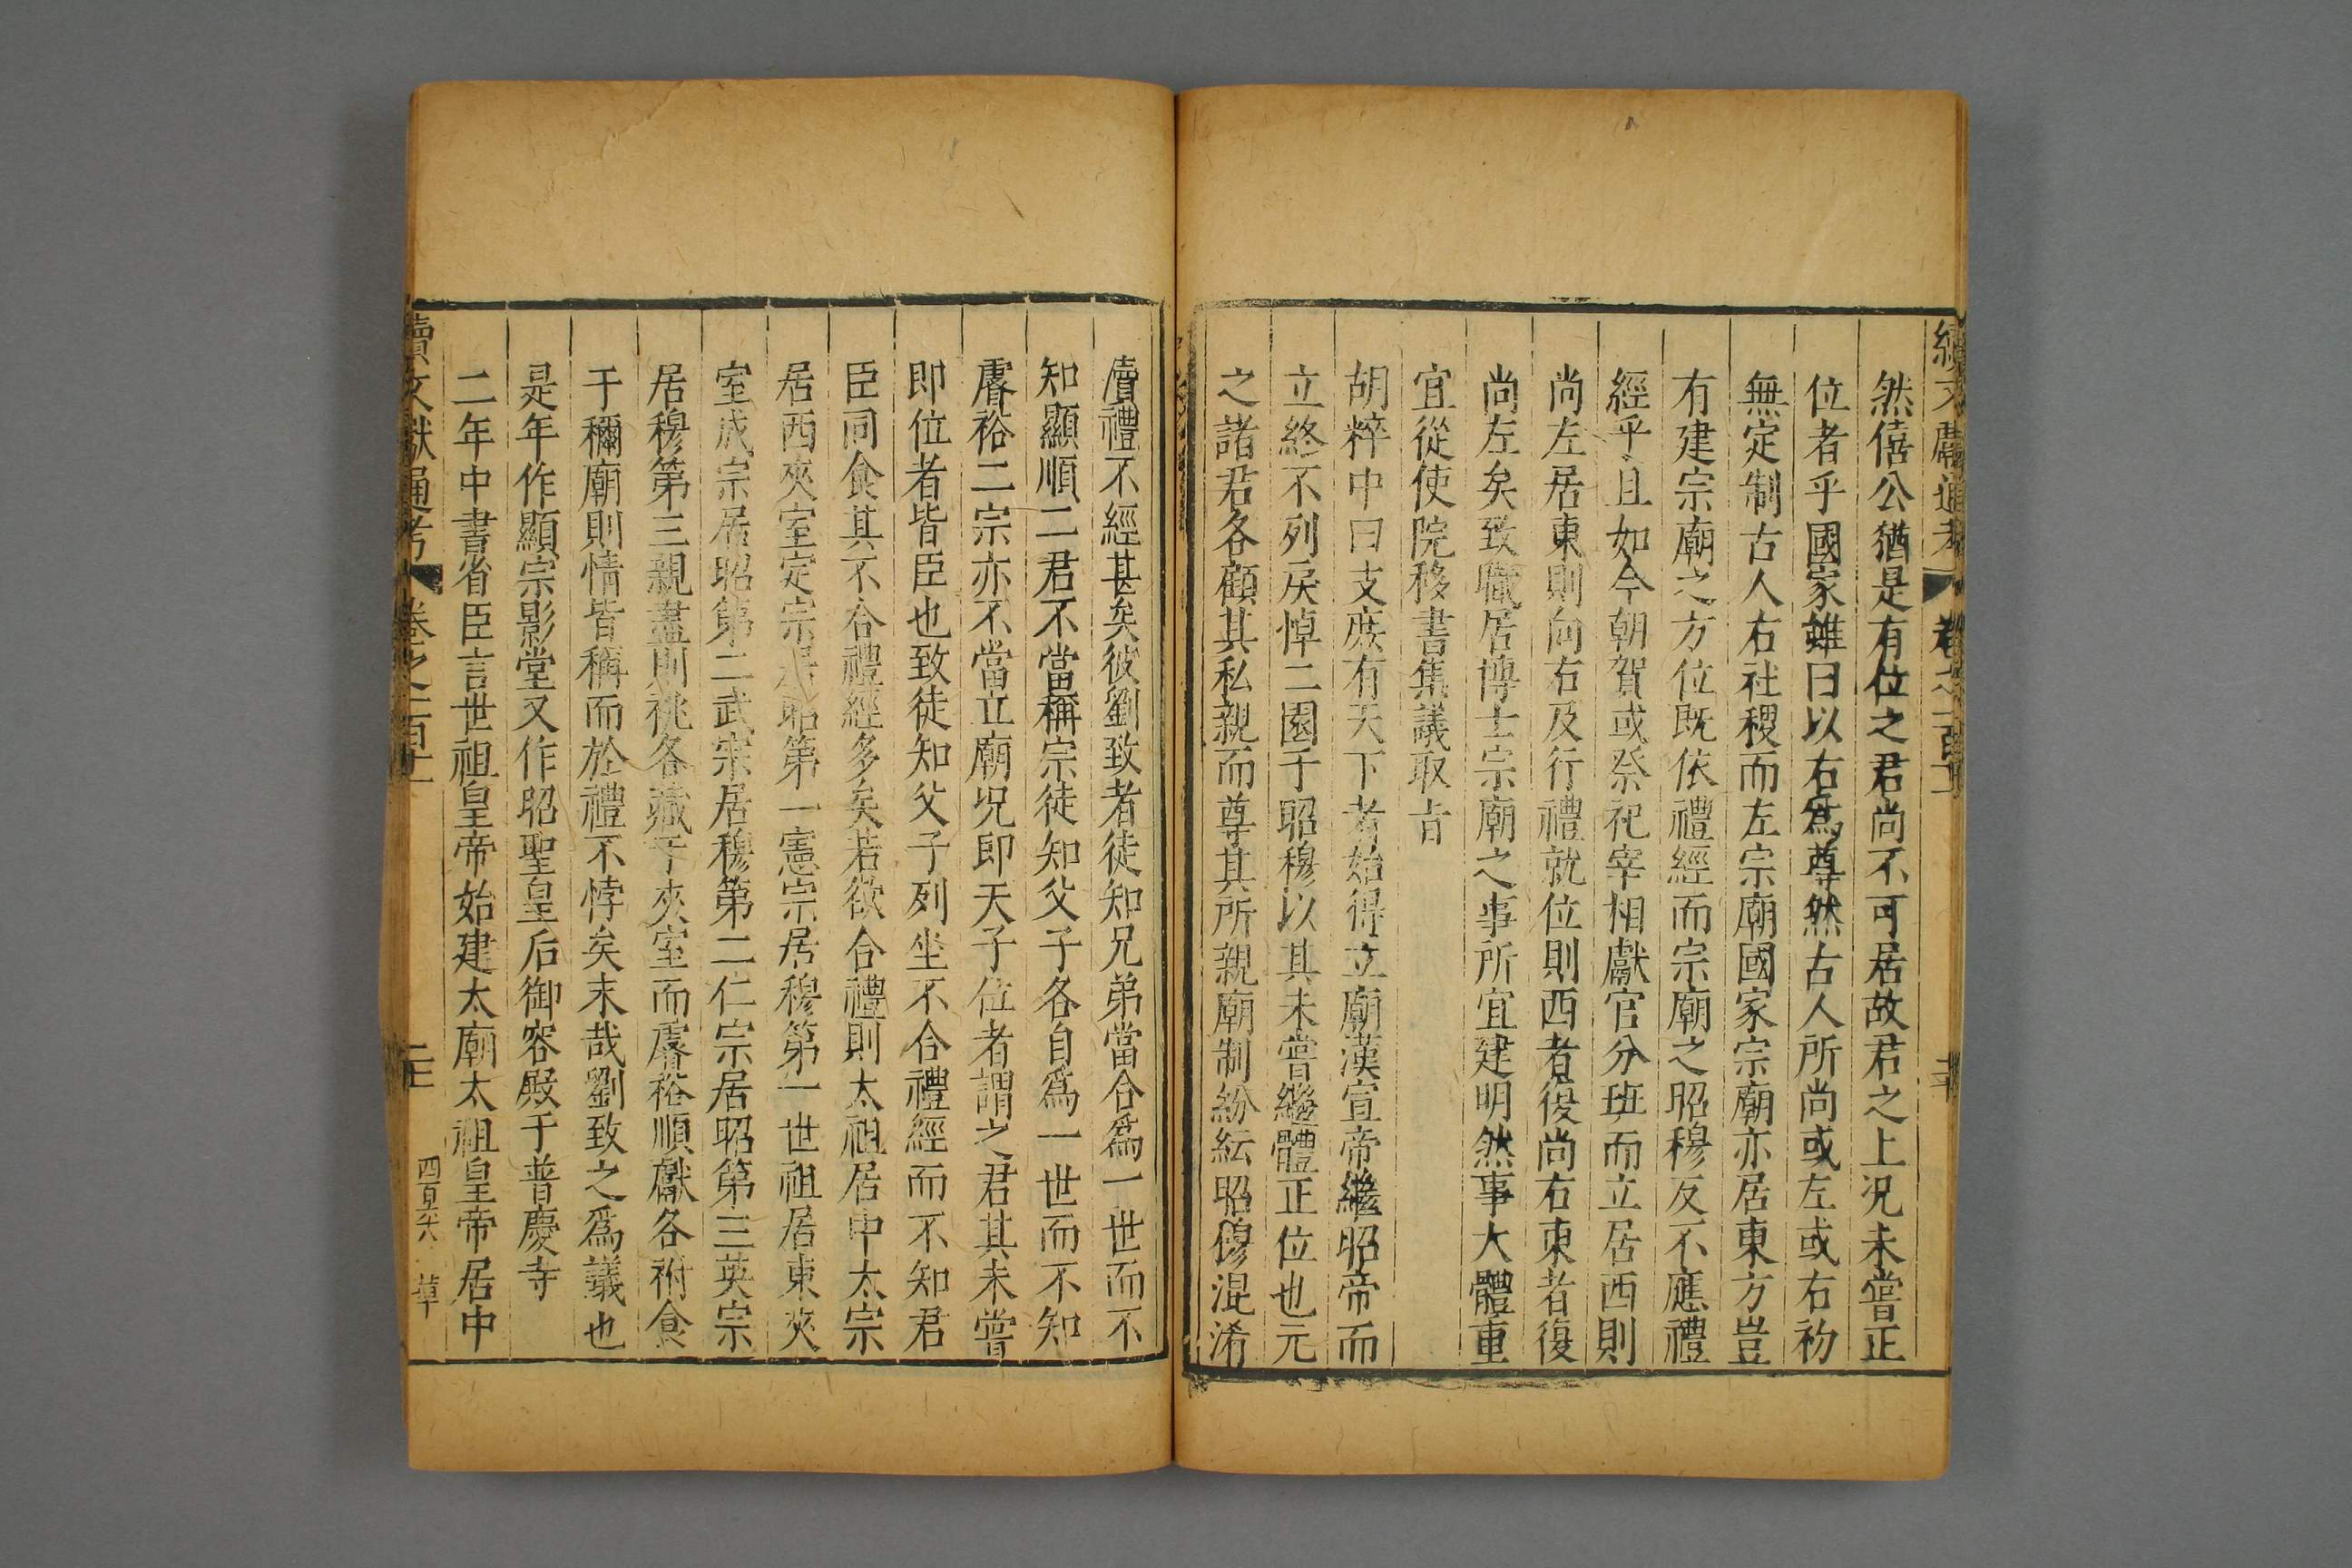 續文獻通考 卷之一百十一
然僖公猶是有位之君尚不可居故君之上况未嘗正
位者乎國家雖曰以右爲尊然古人所尚或左或右初
無定制古人右社稷而左宗廟國家宗廟亦居東方豈
有建宗廟之方位既依禮經而宗廟之昭穆反不應禮
經乎且如今朝賀或祭祀宰相獻官分班而立居西則
尚左居東則尚右及行禮就位則西者復尚右東者復
尚左矣致職居博士宗廟之事所宜建明然事大體重
宜從使院移書集議取㫖
胡粹中曰支庶有天下者始得立廟漢宣帝繼昭帝而
立終不列戾悼二園于昭穆以其未嘗繼體正位也元
之諸君各顧其私親而尊其所親廟制紛紜昭穆混淆
瀆禮不經甚矣彼劉致者徒知兄弟當合爲一世而不
知顯順二君不當稱宗徒知父子各自爲一世而不知
睿裕二宗亦不當立廟况即天子位者謂之君其未嘗
即位者皆臣也致徒知父子列坐不合禮經而不知君
臣同食其不合禮經多矣若欲合禮則太祖居中太宗
居西夾室定宗居昭第一憲宗居穆第一世祖居東夾
室成宗居昭第二武宗居穆第二仁宗居昭第三英宗
居穆第三親盡則祧各藏于夾室而睿裕順獻各祔食
于禰廟則情皆稱而於禮不悖矣末哉劉致之爲議也
是年作顯宗影堂又作昭聖皇后御容殿于普慶寺
二年中書省臣言世祖皇帝始建太廟太祖皇帝居中
續文獻通考 卷之一百十一 二十一